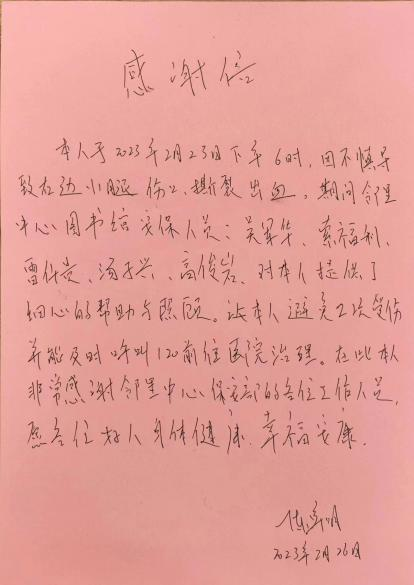 感谢信
本人于2023年2月23日下午6时,因不慎导
致左边小腿伤口撕裂出血。期间邻里
中心图书馆安保人员:吴军华、索福利、
雷仕贵、汤子兴、高俊岩、对本人提供了
细心的帮助与照顾。让本人避免2次受伤
并能及时呼叫120前往医院治理。在此本人
非常感谢邻里中心保安部的各位工作人员,
愿各位好人身体健康、幸福安康.
2023年2月26日